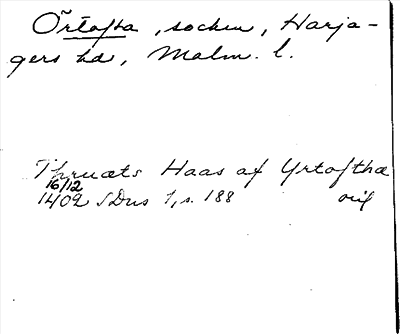 Örtofta, socken, Harja-
gers hd, Malm. l.
Thruæts Haas af Yrtoftha
16/12
1402 SDns 1, s. 188 orig